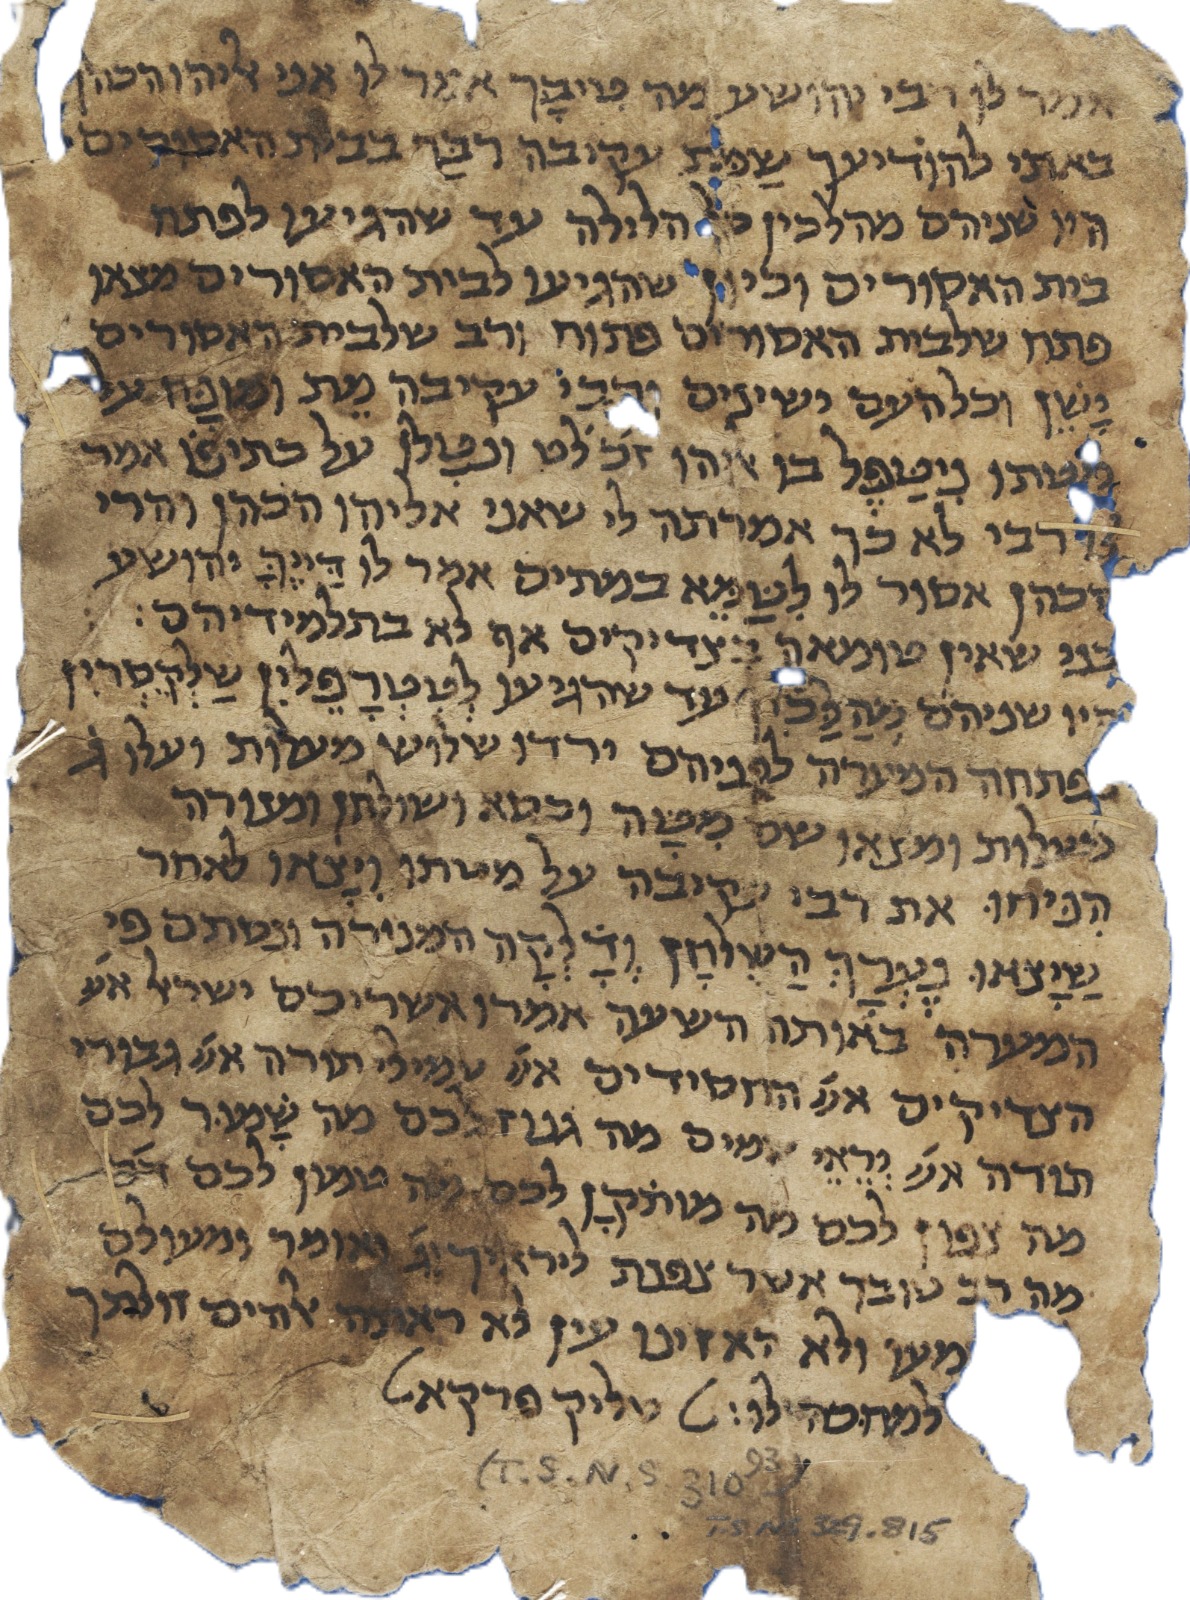 אמר לו רבי יהושע מה טיבך אמר לו אני אליהו הכהן
באתי להודיעך שמת עקיבה רבך בבית האסורים
היו שניהם מהלכין כל הלילה עד שהגיעו לפתח
בית האסורים וכיון שהגיעו לבית האסורים מצאו
פתח שלבית האסורים פתוח ורב שלבית האסורים
יָשֵׁן וכל העם ישינים ורבי עקיבה מֵת ומונח על
מטתו ניטפל בו אליהו ונטלו על כתיפו אמר
לו רבי לא כך אמרתה לי שאני אליהו הכהן והרי
הכהן אסור לו לִטַּמֵּא במתים אמר לו דַּיֶּיךָּ יהושע
בני שאין טומאה בצדיקים אף לא בתלמידיהם :
היו שניהם מהלכין עד שהגיעו לְטִטְרָפֳּלִין שַׁלְקֶסְרִין
נפתחה המערה לפניהם ירדו שלוש מעלות ועלו ג
מעלות ומצאו שם מִטָּה וכסא ושולחן ומנורה
הִנִּיחוּ את רבי עקיבה על מטתו וְיָצְאוּ לאחר
שַׁיָּצְאוּ נֶעֱרַךְ הַשֻּׁלְחָן וְדָּלְקָה המנורה ונסתם פי
המערה באותה השעה אמרו אשריכם ישראל אש
הצדיקים אש החסידים אש עמילי תורה אש גבורי
תורה אש יִרְאֵי שמים מה גנוז לכם מה שָׁמוּר לכם
מה צפון לכם מה מותקן לכם מה טמון לכם
מה רב טובך אשר צפנת ליראיך וג ואומר ומעולם
שמעו ולא האזינו עין לא ראתה אלהים זולתך
למחכה לו : סליק פרקא
(T.S. N.S. 310 93)
T.S N.S 329.815